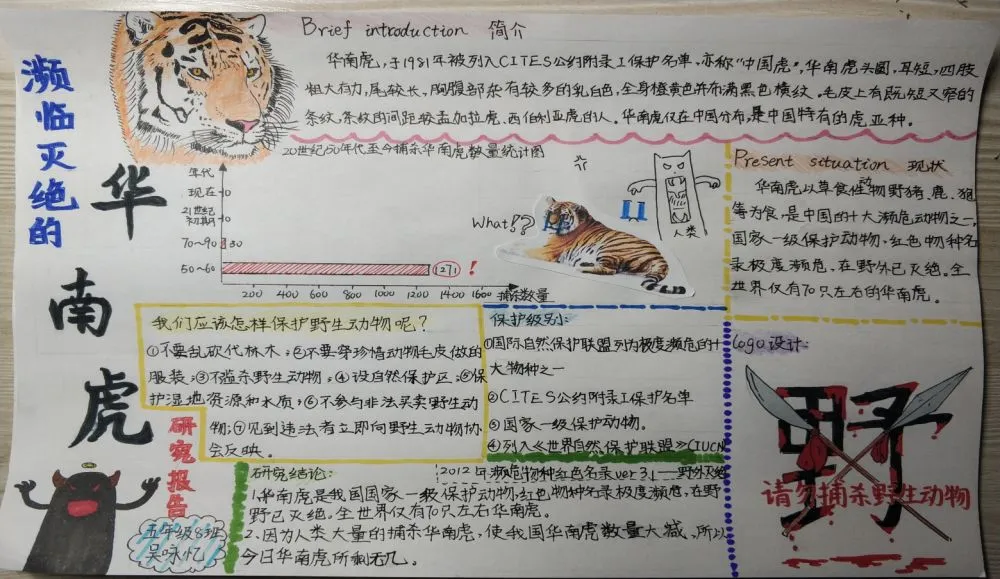 濒临灭绝的
华南虎
研究报告
五年级8班
吴咏忆
Brief introduction 简介
华南虎,于1981年被列入CITES公约附录I保护名单,亦称"中国虎",华南虎头圆,耳短,四肢
粗大有力,尾较长,胸腹部杂有较多的乳白色,全身橙黄色并布满黑色横纹。毛皮上有既短又窄的
条纹,条纹的间距较孟加拉虎、西伯利亚虎的大。华南虎仅在中国分布,是中国特有的虎亚种。
20世纪50年代至今捕杀华南虎数量统计图
年代
现在
0
21世纪
初期
0
70~90
30
50~60
1271
!
200 400 600 800 1000 1200 1400 1600 捕杀数量
What!?
人类
Present situation 现状
华南虎以草食性动物野猪、鹿、狍
等为食,是中国的十大濒危动物之一,
国家一级保护动物,红色物种名
录极度濒危,在野外已灭绝。全
世界仅有70只左右的华南虎。
我们应该怎样保护野生动物呢?
①不要乱砍代林木;②不要穿珍惜动物毛皮做的
服装;③不滥杀野生动物;④设自然保护区;⑤保
护湿地资源和水质;⑥不参与非法买卖野生动
物;⑦见到违法者立即向野生动物协
会反映。
保护级别:
①国际自然保护联盟列为极度濒危的十
大物种之一
②CITES公约附录I保护名单
③国家一级保护动物。
④列入《世界自然保护联盟》(IUCN
2012年濒危物种红色名录ver3.1——野外灭绝
研究结论:
1.华南虎是我国国家一级保护动物,红色物种名录极度濒危,在野
野已灭绝。全世界仅有70只左右华南虎。
2.因为人类大量的捕杀华南虎,使我国华南虎数量大减,所以
今日华南虎所剩无几。
Logo设计:
野
请勿捕杀野生动物